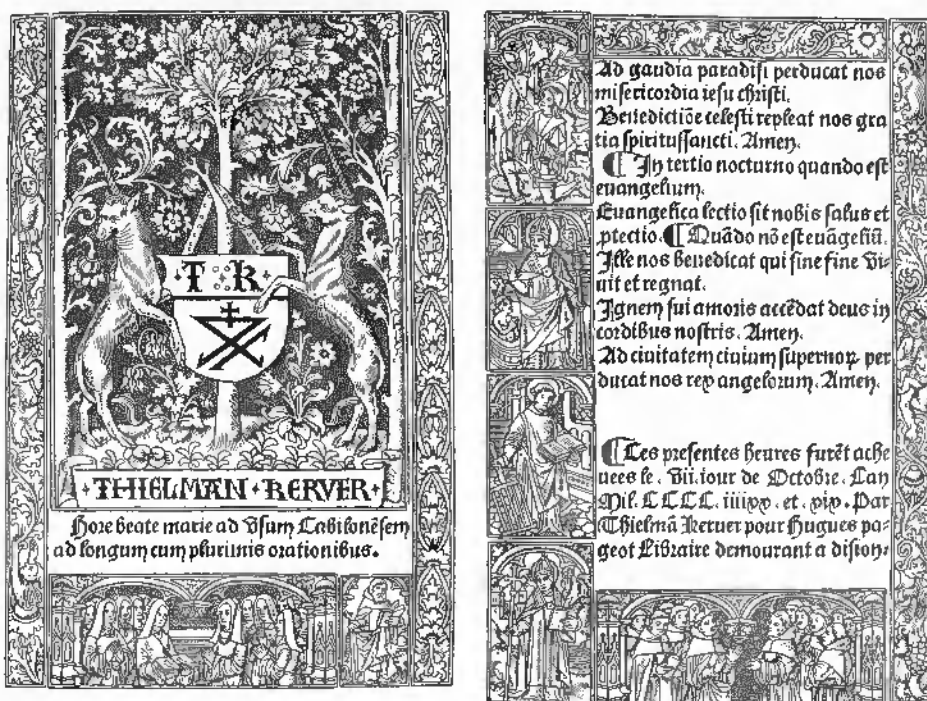 T R
THIELMAN KERVER
Hore beate marie ad vsum Cabilonēsem
ad longum cum plurimis orationibus.
Ad gaudia paradisi perducat nos
misericordia iesu christi.
Benedictiōe celesti repleat nos gra
tia spiritussancti. Amen.
¶ In tertio nocturno quando est
euangelium.
Euangelica lectio sit nobis salus et
ꝓtectio. ¶ Quādo nō est euāgeliū.
Ille nos benedicat qui sine fine vi-
uit et regnat.
Ignem sui amoris accēdat deus in
cordibus nostris. Amen.
Ad ciuitatem ciuium supernoꝝ per
ducat nos rex angelorum. Amen.
¶ Les presentes heures furēt ache
uees le. vii. iour de Octobre. Lan
Mil. CCCC. iiiixx. et. xix. Par
Thielmā Keruer pour Hugues pa-
geot Libraire demourant a dision.